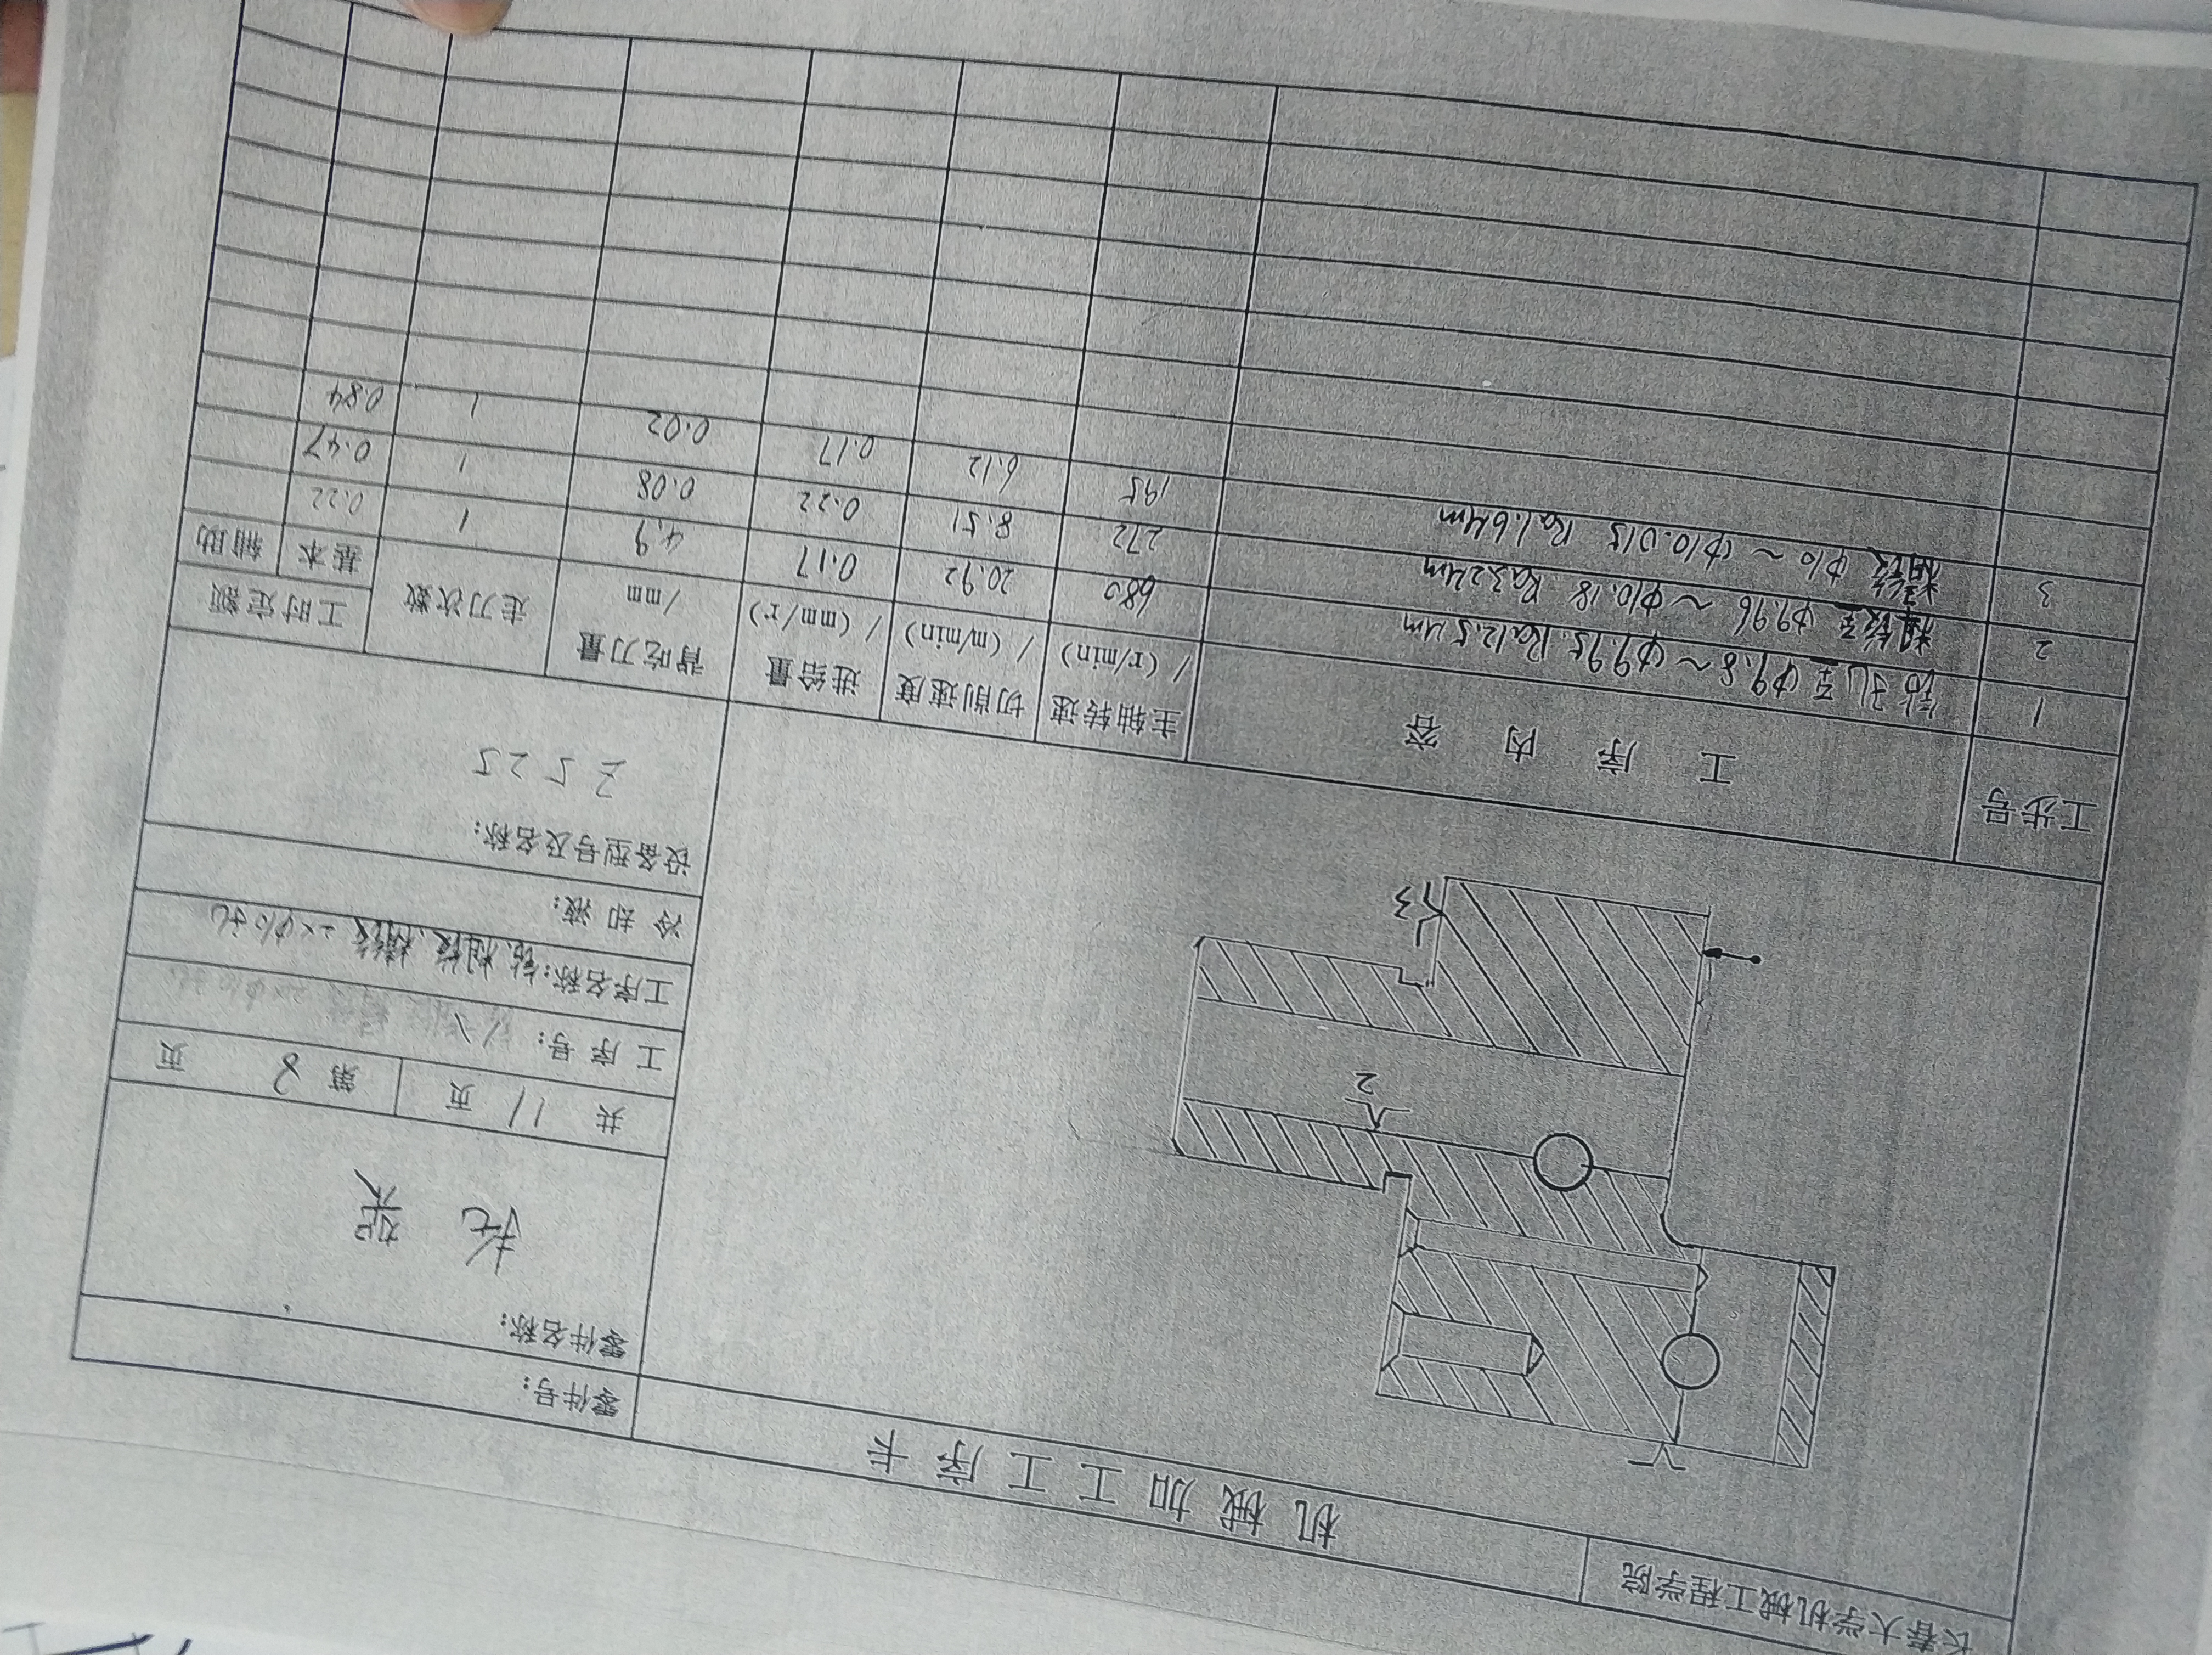 长春大学机械工程学院
机械加工工序卡
零件号:
零件名称:
托架
共 11 页 第 8 页
工序号:
工序名称: 钻、粗铰、精铰 2×φ10孔
冷却液:
设备型号及名称:
Z525
2
3
工步号 工序内容 主轴转速 /(r/min) 切削速度 /(m/min) 进给量 /(mm/r) 背吃刀量 /mm 走刀次数 工时定额 基本 辅助
1 钻孔至 φ9.8~φ9.95. Ra12.5μm 680 20.92 0.17 4.9 1 0.22
2 粗铰至 φ9.96 ~ φ10.18 Ra3.2μm 272 8.51 0.22 0.08 1 0.47
3 精铰 φ10 ~ φ10.015 Ra1.6μm 195 6.12 0.17 0.02 1 0.84